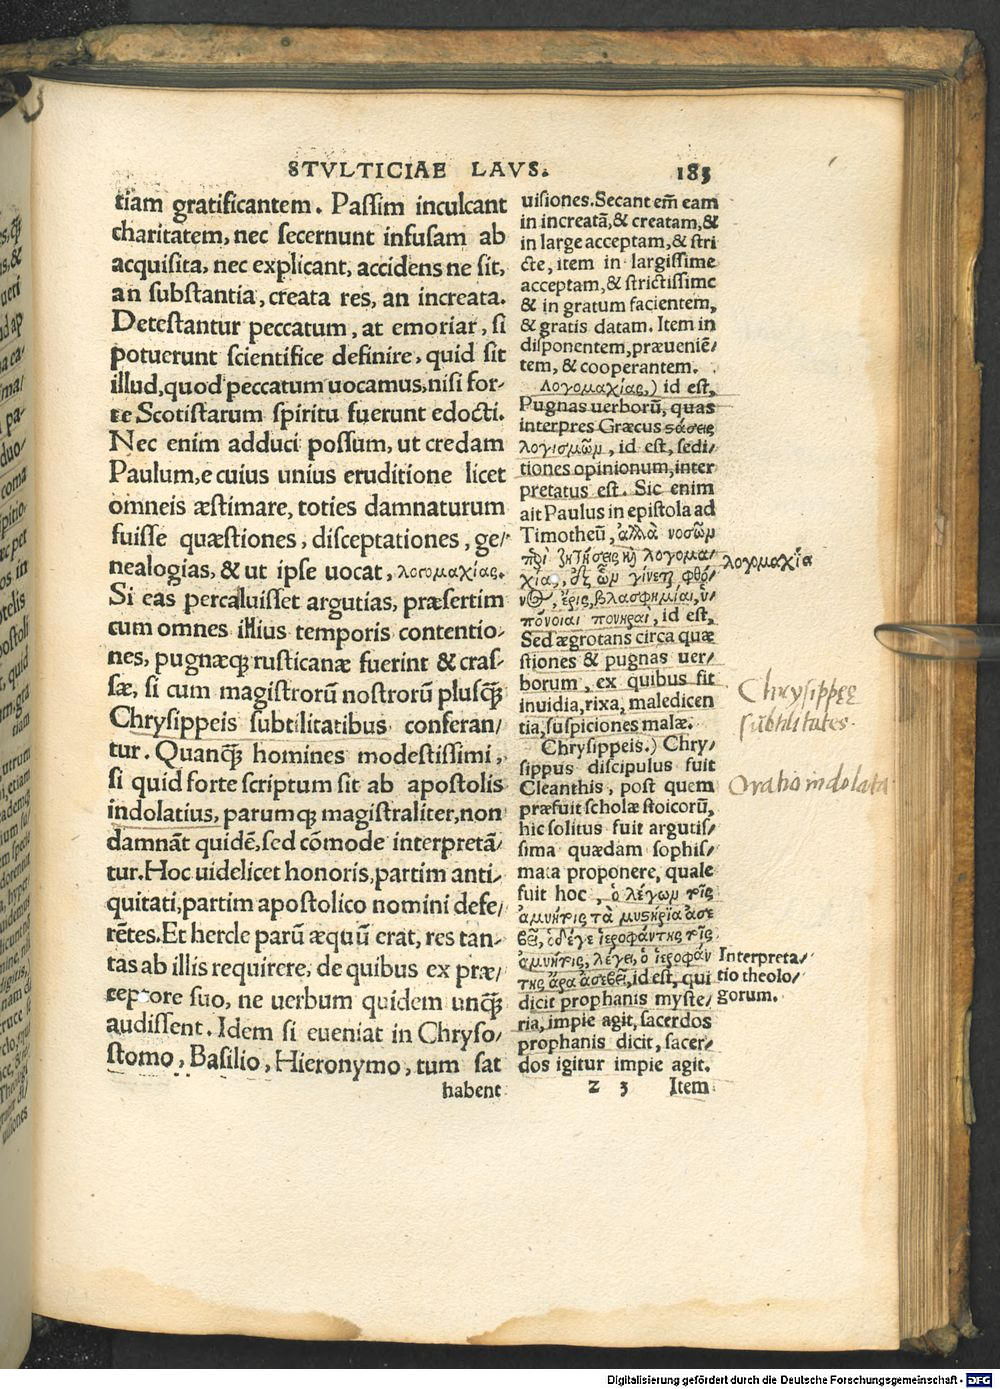 STVLTICIAE LAVS. 183
tiam gratificantem. Passim inculcant
charitatem, nec secernunt infusam ab
acquisita, nec explicant, accidens ne sit,
an substantia, creata res, an increata.
Detestantur peccatum, at emoriar, si
potuerunt scientifice definire, quid sit
illud, quod peccatum uocamus, nisi for-
te Scotistarum spiritu fuerunt edocti.
Nec enim adduci possum, ut credam
Paulum, e cuius unius eruditione licet
omneis æstimare, toties damnaturum
fuisse quæstiones, disceptationes, ge/
nealogias, & ut ipse uocat, λογομαχίας.
Si eas percaluisset argutias, præsertim
cum omnes illius temporis contentio/
nes, pugnæq; rusticanæ fuerint & cras-
sæ, si cum magistrorū nostrorū plusq̃
Chrysippeis subtilitatibus conferan/
tur. Quanq̃ homines modestissimi,
si quid forte scriptum sit ab apostolis
indolatius, parumq; magistraliter, non
damnāt quidē, sed cōmode interpretā/
tur. Hoc uidelicet honoris, partim anti-
quitati, partim apostolico nomini defe/
rētes. Et hercle parū æquū erat, res tan-
tas ab illis requirere, de quibus ex præ/
ceptore suo, ne uerbum quidem unq̃
audissent. Idem si eueniat in Chryso/
stomo, Basilio, Hieronymo, tum sat
habent
uisiones. Secant em̄ eam
in increatā, & creatam, &
in large acceptam, & stri
cte, item in largissime
acceptam, & strictissime
& in gratum facientem,
& gratis datam. Item in
disponentem, præueniē/
tem, & cooperantem.
Λογομαχίας,) id est,
Pugnas uerborū, quas
interpres Græcus στάσεις
λογισμῶν, id est, sedi/
tiones opinionum, inter
pretatus est. Sic enim
ait Paulus in epistola ad
Timotheū, ἀλλὰ νοσῶν
περὶ ζητήσεις καὶ λογομα/
χίας, ἐξ ὧν γίνεται φθό/
νος, ἔρις, βλασφημίαι, ὑ/
πόνοιαι πονηραι, id est,
Sed ægrotans circa quæ
stiones & pugnas uer/
borum, ex quibus fit
inuidia, rixa, maledicen
tia, suspiciones malæ.
Chrysippeis.) Chry/
sippus discipulus fuit
Cleanthis, post quem
præfuit scholæ stoicorū,
hic solitus fuit argutis/
sima quædam sophis/
mata proponere, quale
fuit hoc, ὁ λέγων τοῖς
ἀμυήτοις τὰ μυστήρια ἀσε
βεῖ, ὁ δέγε ἱεροφάντης τοῖς
ἀμυήτοις λέγει, ὁ ἱεροφάν
της ἄρα ἀσεβεῖ, id est, qui
dicit prophanis myste/
ria, impie agit, sacerdos
prophanis dicit, sacer/
dos igitur impie agit.
z 3 Item
λογομαχία
Chrysippeę
subtilitates.
Oratio indolata
Interpreta/
tio theolo/
gorum.
Digitalisierung gefördert durch die Deutsche Forschungsgemeinschaft - DFG